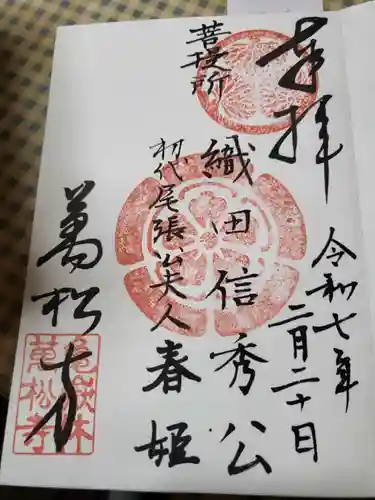 奉拝
令和七年
二月二十日
菩提所
織田信秀公
初代尾張公夫人
春姫
萬松寺
亀嶽林
萬松寺